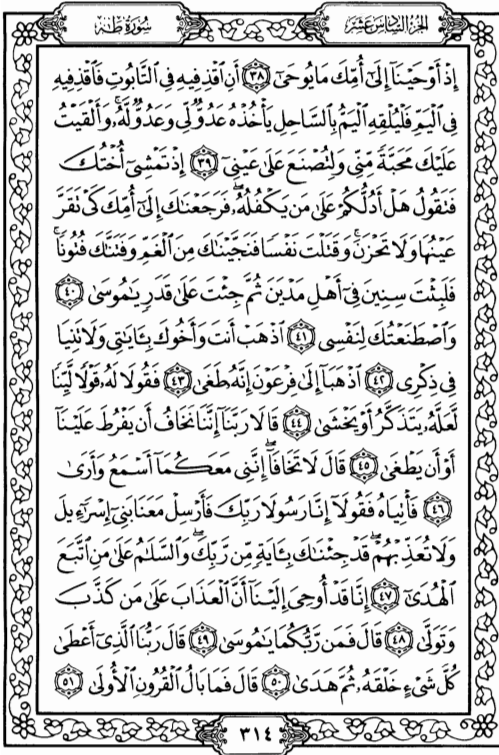 الجزء السادس عشر
سورة طه
إِذْ أَوْحَيْنَا إِلَىٰ أُمِّكَ مَا يُوحَىٰ ٣٨ أَنِ اقْذِفِيهِ فِي التَّابُوتِ فَاقْذِفِيهِ
فِي الْيَمِّ فَلْيُلْقِهِ الْيَمُّ بِالسَّاحِلِ يَأْخُذْهُ عَدُوٌّ لِّي وَعَدُوٌّ لَّهُ وَأَلْقَيْتُ
عَلَيْكَ مَحَبَّةً مِّنِّي وَلِتُصْنَعَ عَلَىٰ عَيْنِي ٣٩ إِذْ تَمْشِي أُخْتُكَ
فَتَقُولُ هَلْ أَدُلُّكُمْ عَلَىٰ مَن يَكْفُلُهُ فَرَجَعْنَاكَ إِلَىٰ أُمِّكَ كَيْ تَقَرَّ
عَيْنُهَا وَلَا تَحْزَنَ وَقَتَلْتَ نَفْسًا فَنَجَّيْنَاكَ مِنَ الْغَمِّ وَفَتَنَّاكَ فُتُونًا
فَلَبِثْتَ سِنِينَ فِي أَهْلِ مَدْيَنَ ثُمَّ جِئْتَ عَلَىٰ قَدَرٍ يَا مُوسَىٰ ٤٠
وَاصْطَنَعْتُكَ لِنَفْسِي ٤١ اذْهَبْ أَنتَ وَأَخُوكَ بِآيَاتِي وَلَا تَنِيَا
فِي ذِكْرِي ٤٢ اذْهَبَا إِلَىٰ فِرْعَوْنَ إِنَّهُ طَغَىٰ ٤٣ فَقُولَا لَهُ قَوْلًا لَّيِّنًا
لَّعَلَّهُ يَتَذَكَّرُ أَوْ يَخْشَىٰ ٤٤ قَالَا رَبَّنَا إِنَّنَا نَخَافُ أَن يَفْرُطَ عَلَيْنَا
أَوْ أَن يَطْغَىٰ ٤٥ قَالَ لَا تَخَافَا إِنَّنِي مَعَكُمَا أَسْمَعُ وَأَرَىٰ
٤٦ فَأْتِيَاهُ فَقُولَا إِنَّا رَسُولَا رَبِّكَ فَأَرْسِلْ مَعَنَا بَنِي إِسْرَائِيلَ
وَلَا تُعَذِّبْهُمْ قَدْ جِئْنَاكَ بِآيَةٍ مِّن رَّبِّكَ وَالسَّلَامُ عَلَىٰ مَنِ اتَّبَعَ
الْهُدَىٰ ٤٧ إِنَّا قَدْ أُوحِيَ إِلَيْنَا أَنَّ الْعَذَابَ عَلَىٰ مَن كَذَّبَ
وَتَوَلَّىٰ ٤٨ قَالَ فَمَن رَّبُّكُمَا يَا مُوسَىٰ ٤٩ قَالَ رَبُّنَا الَّذِي أَعْطَىٰ
كُلَّ شَيْءٍ خَلْقَهُ ثُمَّ هَدَىٰ ٥٠ قَالَ فَمَا بَالُ الْقُرُونِ الْأُولَىٰ ٥١
٣١٤